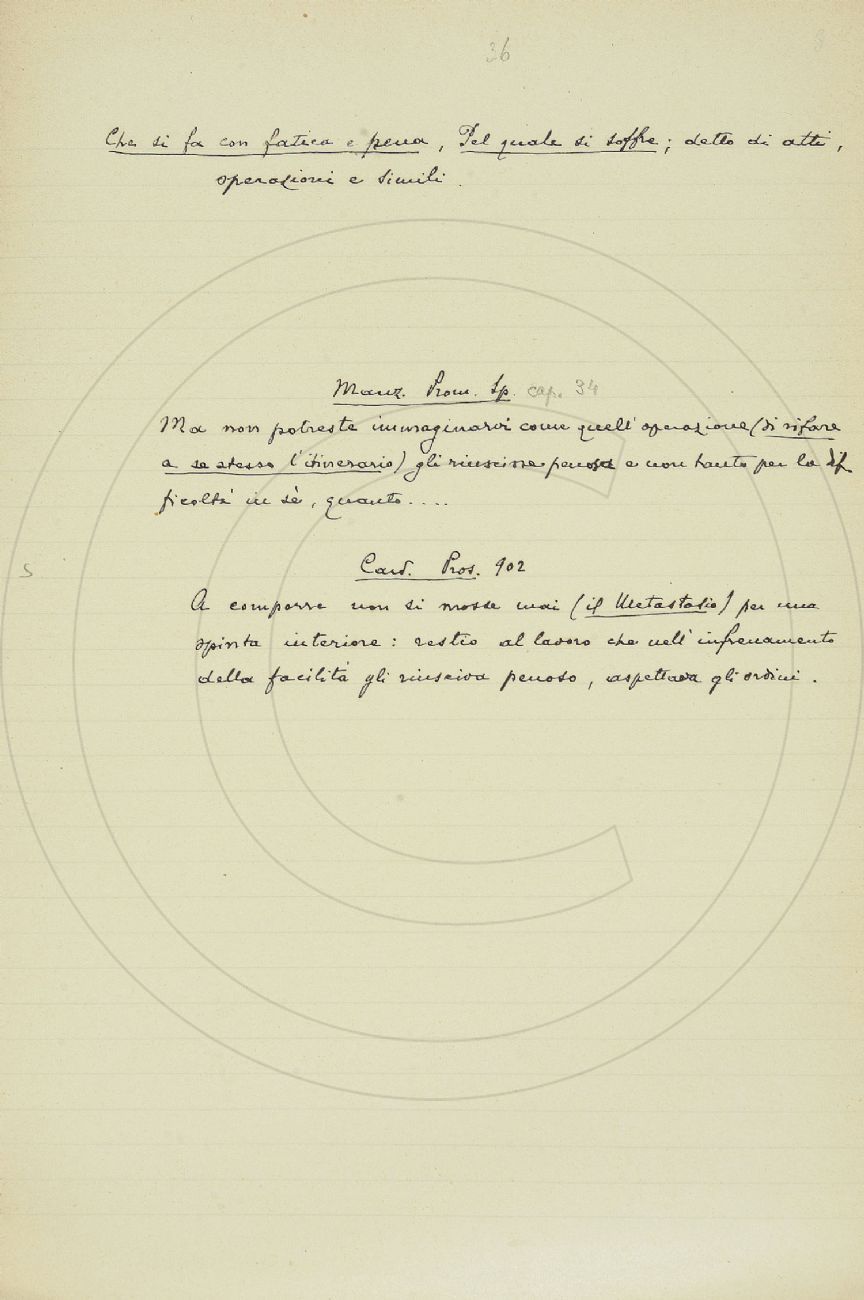 36
Che si fa con fatica e pena, Pel quale si soffre; detto di atti,
operazioni e simili.
Manz. Prom. Sp. cap. 34
Ma non potreste immaginarvi come quell'operazione (di rifare
a se stesso l'itinerario) gli riuscisse penosa e non tanto per la dif-
ficoltà in sè, quanto....
Card. Pros. 902
A comporre non si mosse mai (il Metastasio) per una
spinta interiore: restio al lavoro che nell'infrenamento
della facilità gli riusciva penoso, aspettava gli ordini.